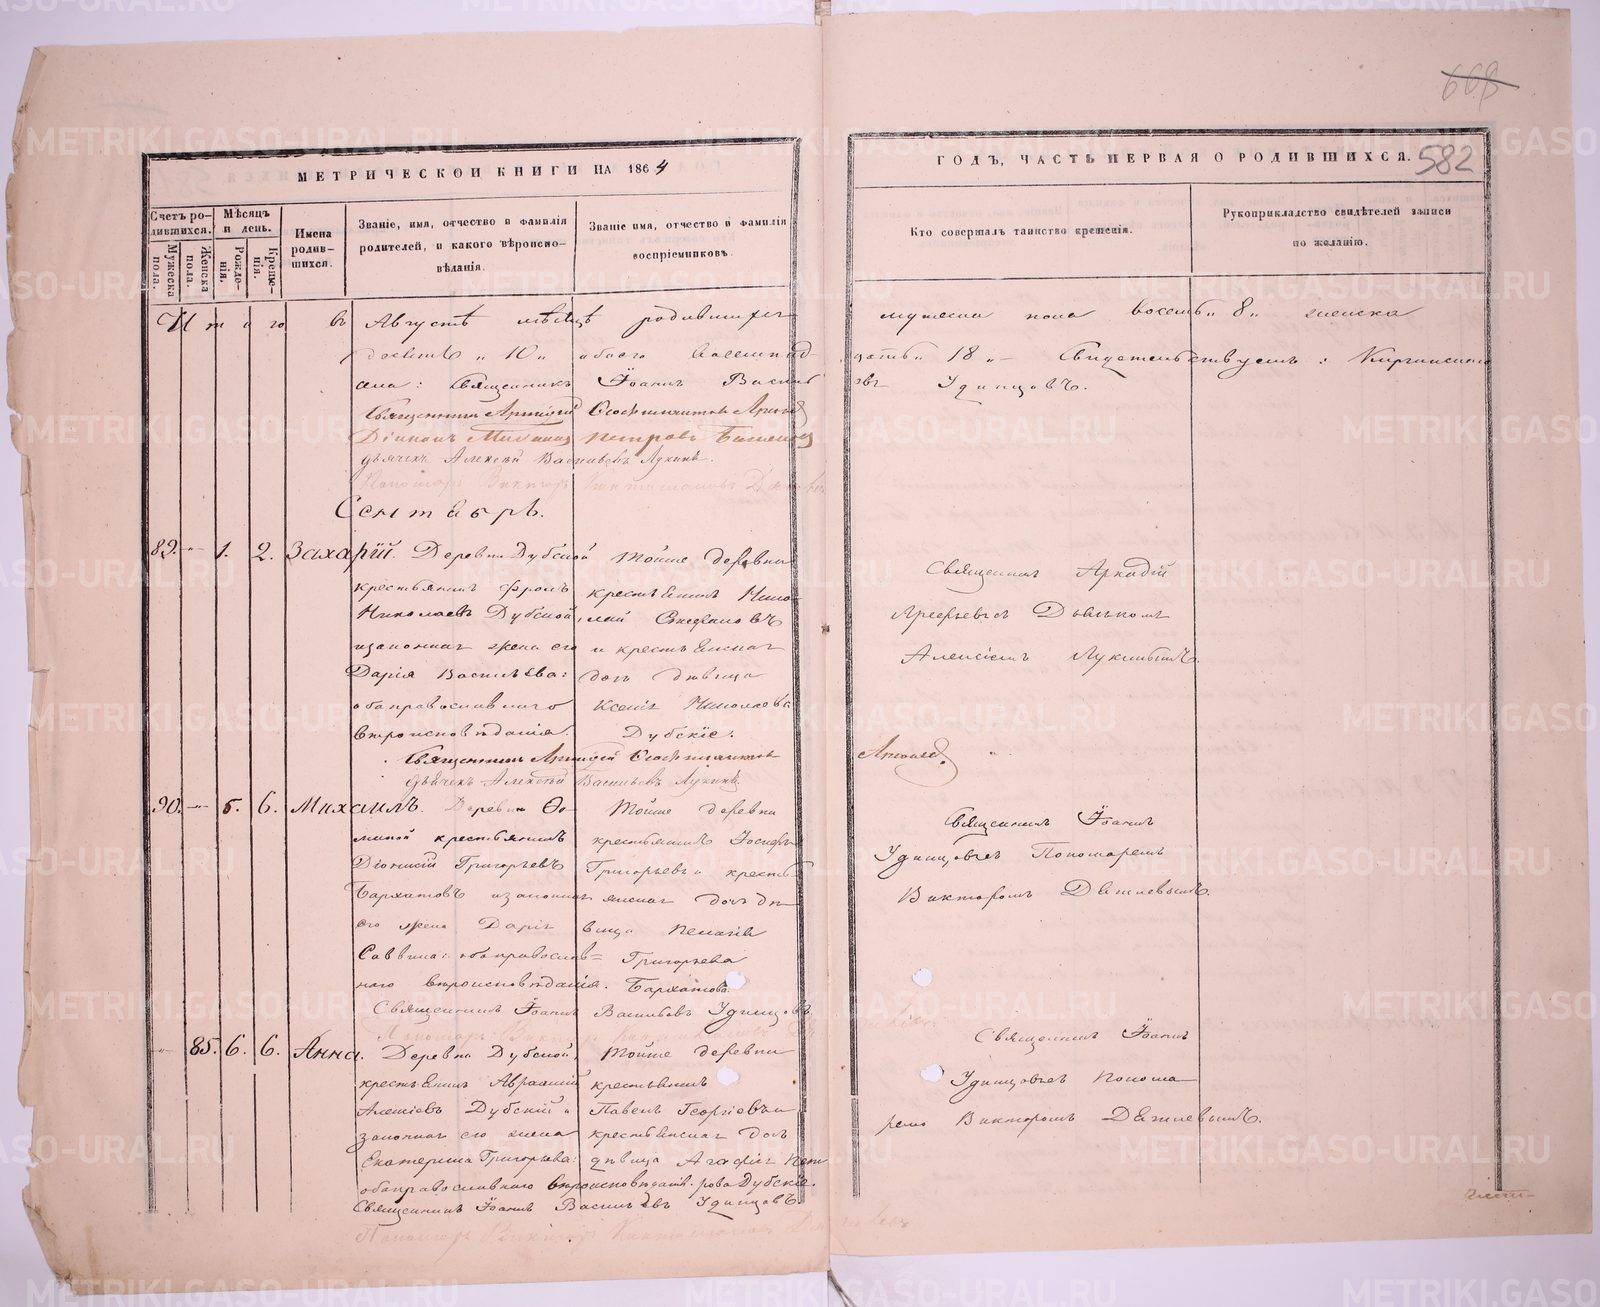 668
МЕТРИЧЕСКОЙ КНИГИ НА 1864
ГОДЪ, ЧАСТЬ ПЕРВАЯ О РОДИВШИХСЯ.
582
Счетъ ро-
дившихся.
Мужеска пола.
Женска пола.
Мѣсяцъ
и день.
Рожде-
нія.
Креще-
нія.
Имена
родив-
шихся.
Званіе, имя, отчество и фамилія
родителей, и какого вѣроиспо-
вѣданія.
Званіе имя, отчество и фамилія
воспріемниковъ.
Кто совершалъ таинство крещенія.
Рукоприкладство свидѣтелей записи
по желанію.
Итого въ Августѣ мѣсяцѣ родившихся мужеска пола восемь „8„ женска
десять „10„ обоего восемнад- цать „18„ Свидетельствуемъ: Киргинского
Священникъ Іоаннъ Васильевъ Удинцовъ.
Священникъ Аркадій
Діаконъ Михаилъ Петровъ
дьячекъ Алексѣй Васильевъ Лукинъ.
Пономарь Викторъ
Сентябрь.
89. 1. 2. Захарій. Деревни Дубской
крестьянинъ Фролъ
Николаевъ Дубской,
и законная жена его
Дарія Васильева:
оба православнаго
вѣроисповѣданія.
Тойже деревни
крестьянинъ Нико-
лай
и крестьянская
дочь дѣвица
Ксенія Николаева
Дубскіе.
Священникъ Аркадій
Арефьевъ съ Дьячкомъ
Алексѣемъ Лукинымъ.
Священникъ Аркадій
дьячекъ Алексѣй Васильевъ Лукинъ
90. 5. 6. Михаилъ. Деревни Ѳо-
миной крестьянинъ
Діонисій Григорьевъ
Бархатовъ и законная
его жена Дарія
Саввина: оба православ=
наго вѣроисповѣданія.
Тойже деревни
крестьянинъ Іосифъ
Григорьевъ и кресть-
янская дочь дѣ-
вица Пелагія
Григорьева
Бархатова.
Священникъ Іоаннъ
Удинцовъ съ Пономаремъ
Викторомъ Дягилевымъ.
Священникъ Іоаннъ Васильевъ Удинцовъ
85. 6. 6. Анна. Деревни Дубской,
крестьянинъ Авраамій
Алексѣевъ Дубскій и
законная его жена
Екатерина Григорьева:
оба православнаго вѣроисповѣданія.
Тойже деревни
крестьянинъ
Павелъ Георгіевъ и
крестьянская дочь
дѣвица Агафія Пет-
рова Дубскіе.
Священникъ Іоаннъ
Удинцовъ съ Понома-
ремъ Викторомъ Дягилевымъ.
Священникъ Іоаннъ Васильевъ Удинцовъ
Пономарь Викторъ